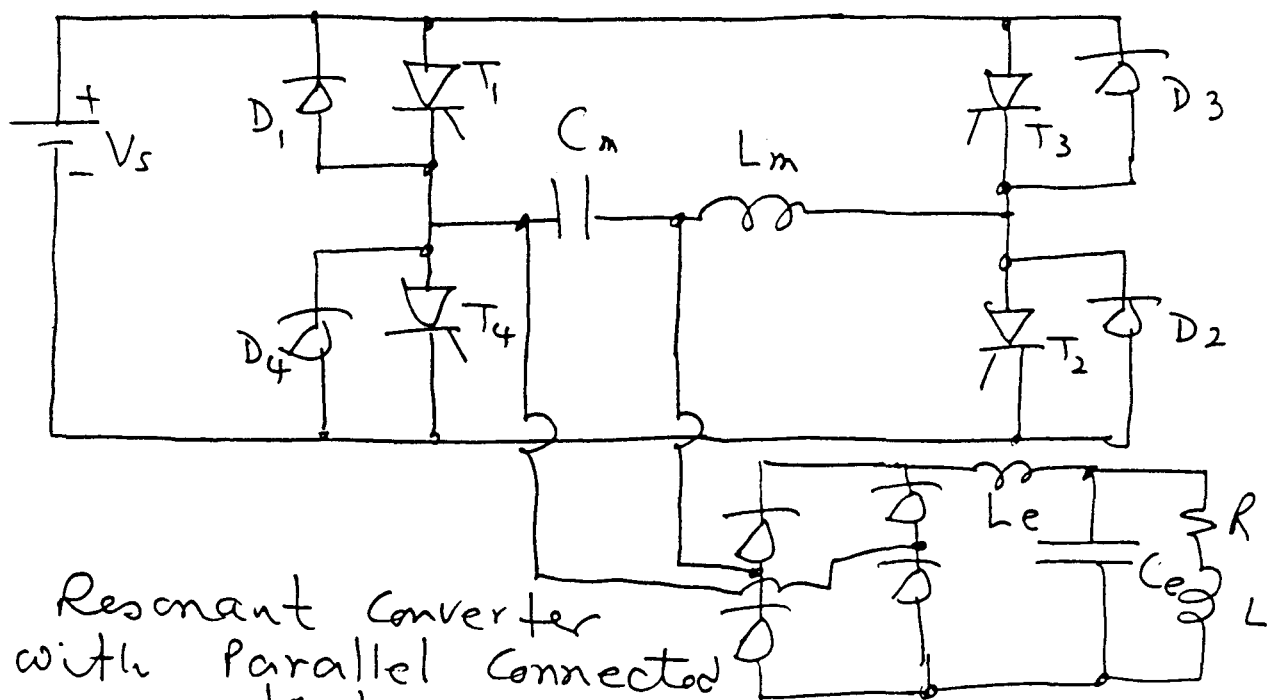 T1
D3
D1
+
Vs
-
Cm
Lm
T3
D4
T4
T2
D2
Le
R
Ce
L
Resonant Converter
with Parallel Connected